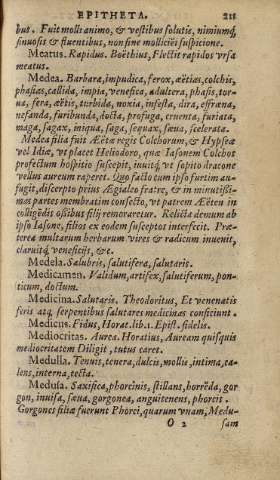 EPITHETA. 211
bus. Fuit molli animo, & vestibus solutis, nimiumq́;
sinuosis & fluentibus, non sine mollitiei suspicione.
Meatus. Rapidus. Boëthius, Flectit rapidos vrsa
meatus.
Medea. Barbara, impudica, ferox, æētias, colchis,
phasias, callida, impia, venefica, adultera, phasis, tor-
ua, fera, æētis, turbida, noxia, infesta, dira, effræna,
nefanda, furibunda, docta, profuga, cruenta, furiata,
maga, sagax, iniqua, saga, sequax, sæua, scelerata.
Medea filia fuit Æetæ regis Colchorum, & Hypseæ
vel Idiæ, vt placet Heliodoro, quæ Iasonem Colchos
profectum hospitio suscepit, iuuitq́; vt sopito dracone
vellus aureum raperet. Quo facto cum ipso furtim au-
fugit, discerpto prius Ægialeo fratre, & in minutissi-
mas partes membratim consecto, vt patrem Æeten in
colligēdis ossibus filij remoraretur. Relicta demum ab
ipso Iasone, filios ex eodem susceptos interfecit. Præ-
terea multarum herbarum vires & radicum inuenit,
claruitq́; veneficijs, &c.
Medela. Salubris, salutifera, salutaris.
Medicamen. Validum, artifex, salutiferum, pon-
ticum, doctum.
Medicina. Salutaris. Theodoritus, Et venenatis
feris atq; serpentibus salutares medicinas conficiunt.
Medicus. Fidus, Horat. lib. 1. Epist. fidelis.
Mediocritas. Aurea. Horatius, Auream quisquis
mediocritatem Diligit, tutus caret.
Medulla. Tenuis, tenera, dulcis, mollis, intima, ca-
lens, interna, tecta.
Medusa. Saxifica, phorcinis, stillans, horrēda, gor
gon, inuisa, sæua, gorgonea, anguitenens, phorcis.
Gorgones filiæ fuerunt Phorci, quarum vnam, Medu-
O 2 sam